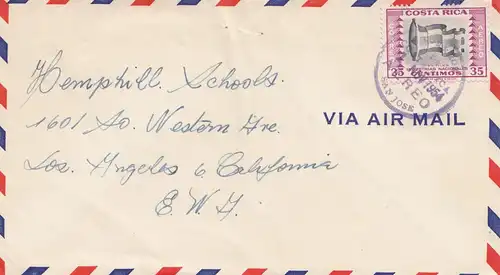 COSTA RICA
AEREO
35 CENTIMOS 35
1954
AEREO
SAN JOSE
VIA AIR MAIL
Hemphill Schools.
1601 So. Western Ave.
Los Angeles 6 California
E. W. A.